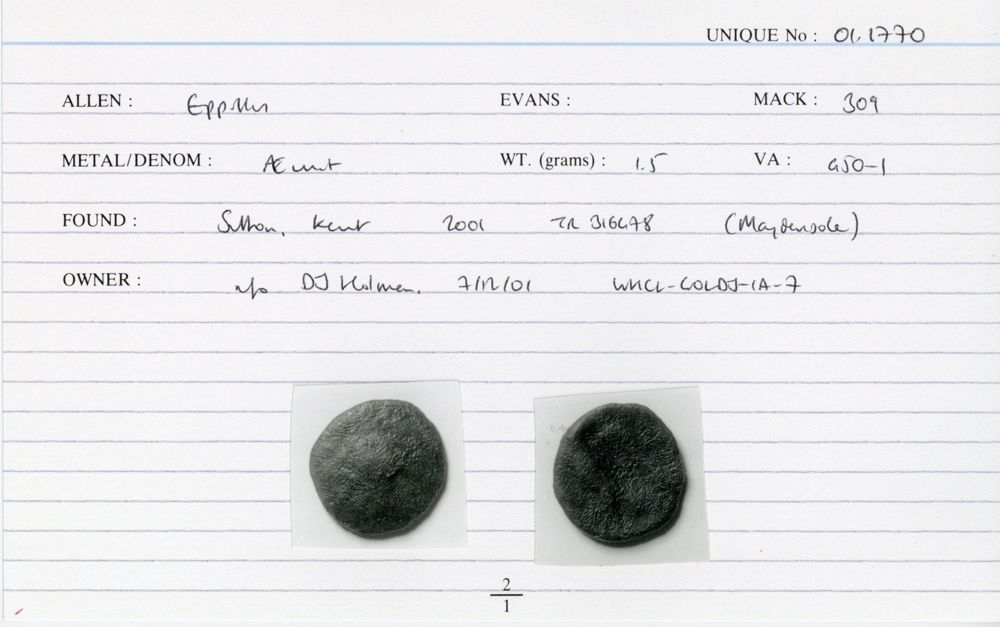 UNIQUE No : 01.1770
ALLEN : Eppillus EVANS : MACK : 309
METAL/DENOM : Æ unit WT. (grams) : 1.5 VA : 450-1
FOUND : Sutton, Kent 2001 TR 316478 (Maydensole)
OWNER : n/o DJ Holman, 7/12/01 WHCL-COLDJ-IA-7
2
1